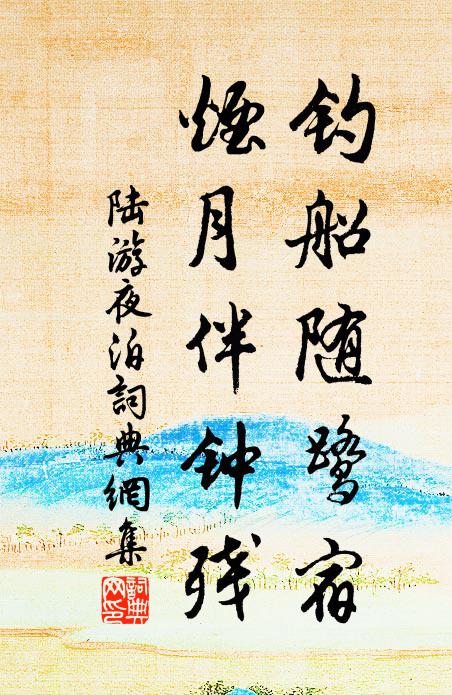 钓船随鹭宿
煙月伴钟残
陆游夜泊詞典網集